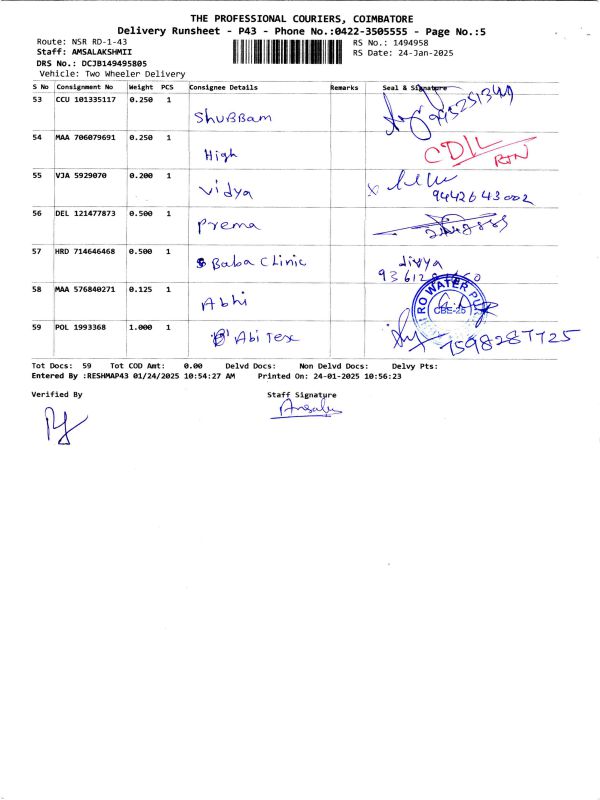 THE PROFESSIONAL COURIERS, COIMBATORE
Delivery Runsheet - P43 - Phone No.:0422-3505555 - Page No.:5
Route: NSR RD-1-43 RS No.: 1494958
Staff: AMSALAKSHMII RS Date: 24-Jan-2025
DRS No.: DCJB149495805
Vehicle: Two Wheeler Delivery
S No Consignment No Weight PCS Consignee Details Remarks Seal & Signature
53 CCU 101335117 0.250 1 Shubbam
54 MAA 706079691 0.250 1 High CDIL RTN
55 VJA 5929070 0.200 1 Vidya 9442643002
56 DEL 121477873 0.500 1 Prema
57 HRD 714646468 0.500 1 Baba Clinic divya
58 MAA 576840271 0.125 1 Abhi RO WATER CBE-25
59 POL 1993368 1.000 1 Abi Tex 7598287725
Tot Docs: 59 Tot COD Amt: 0.00 Delvd Docs: Non Delvd Docs: Delvy Pts:
Entered By :RESHMAP43 01/24/2025 10:54:27 AM Printed On: 24-01-2025 10:56:23
Verified By Staff Signature